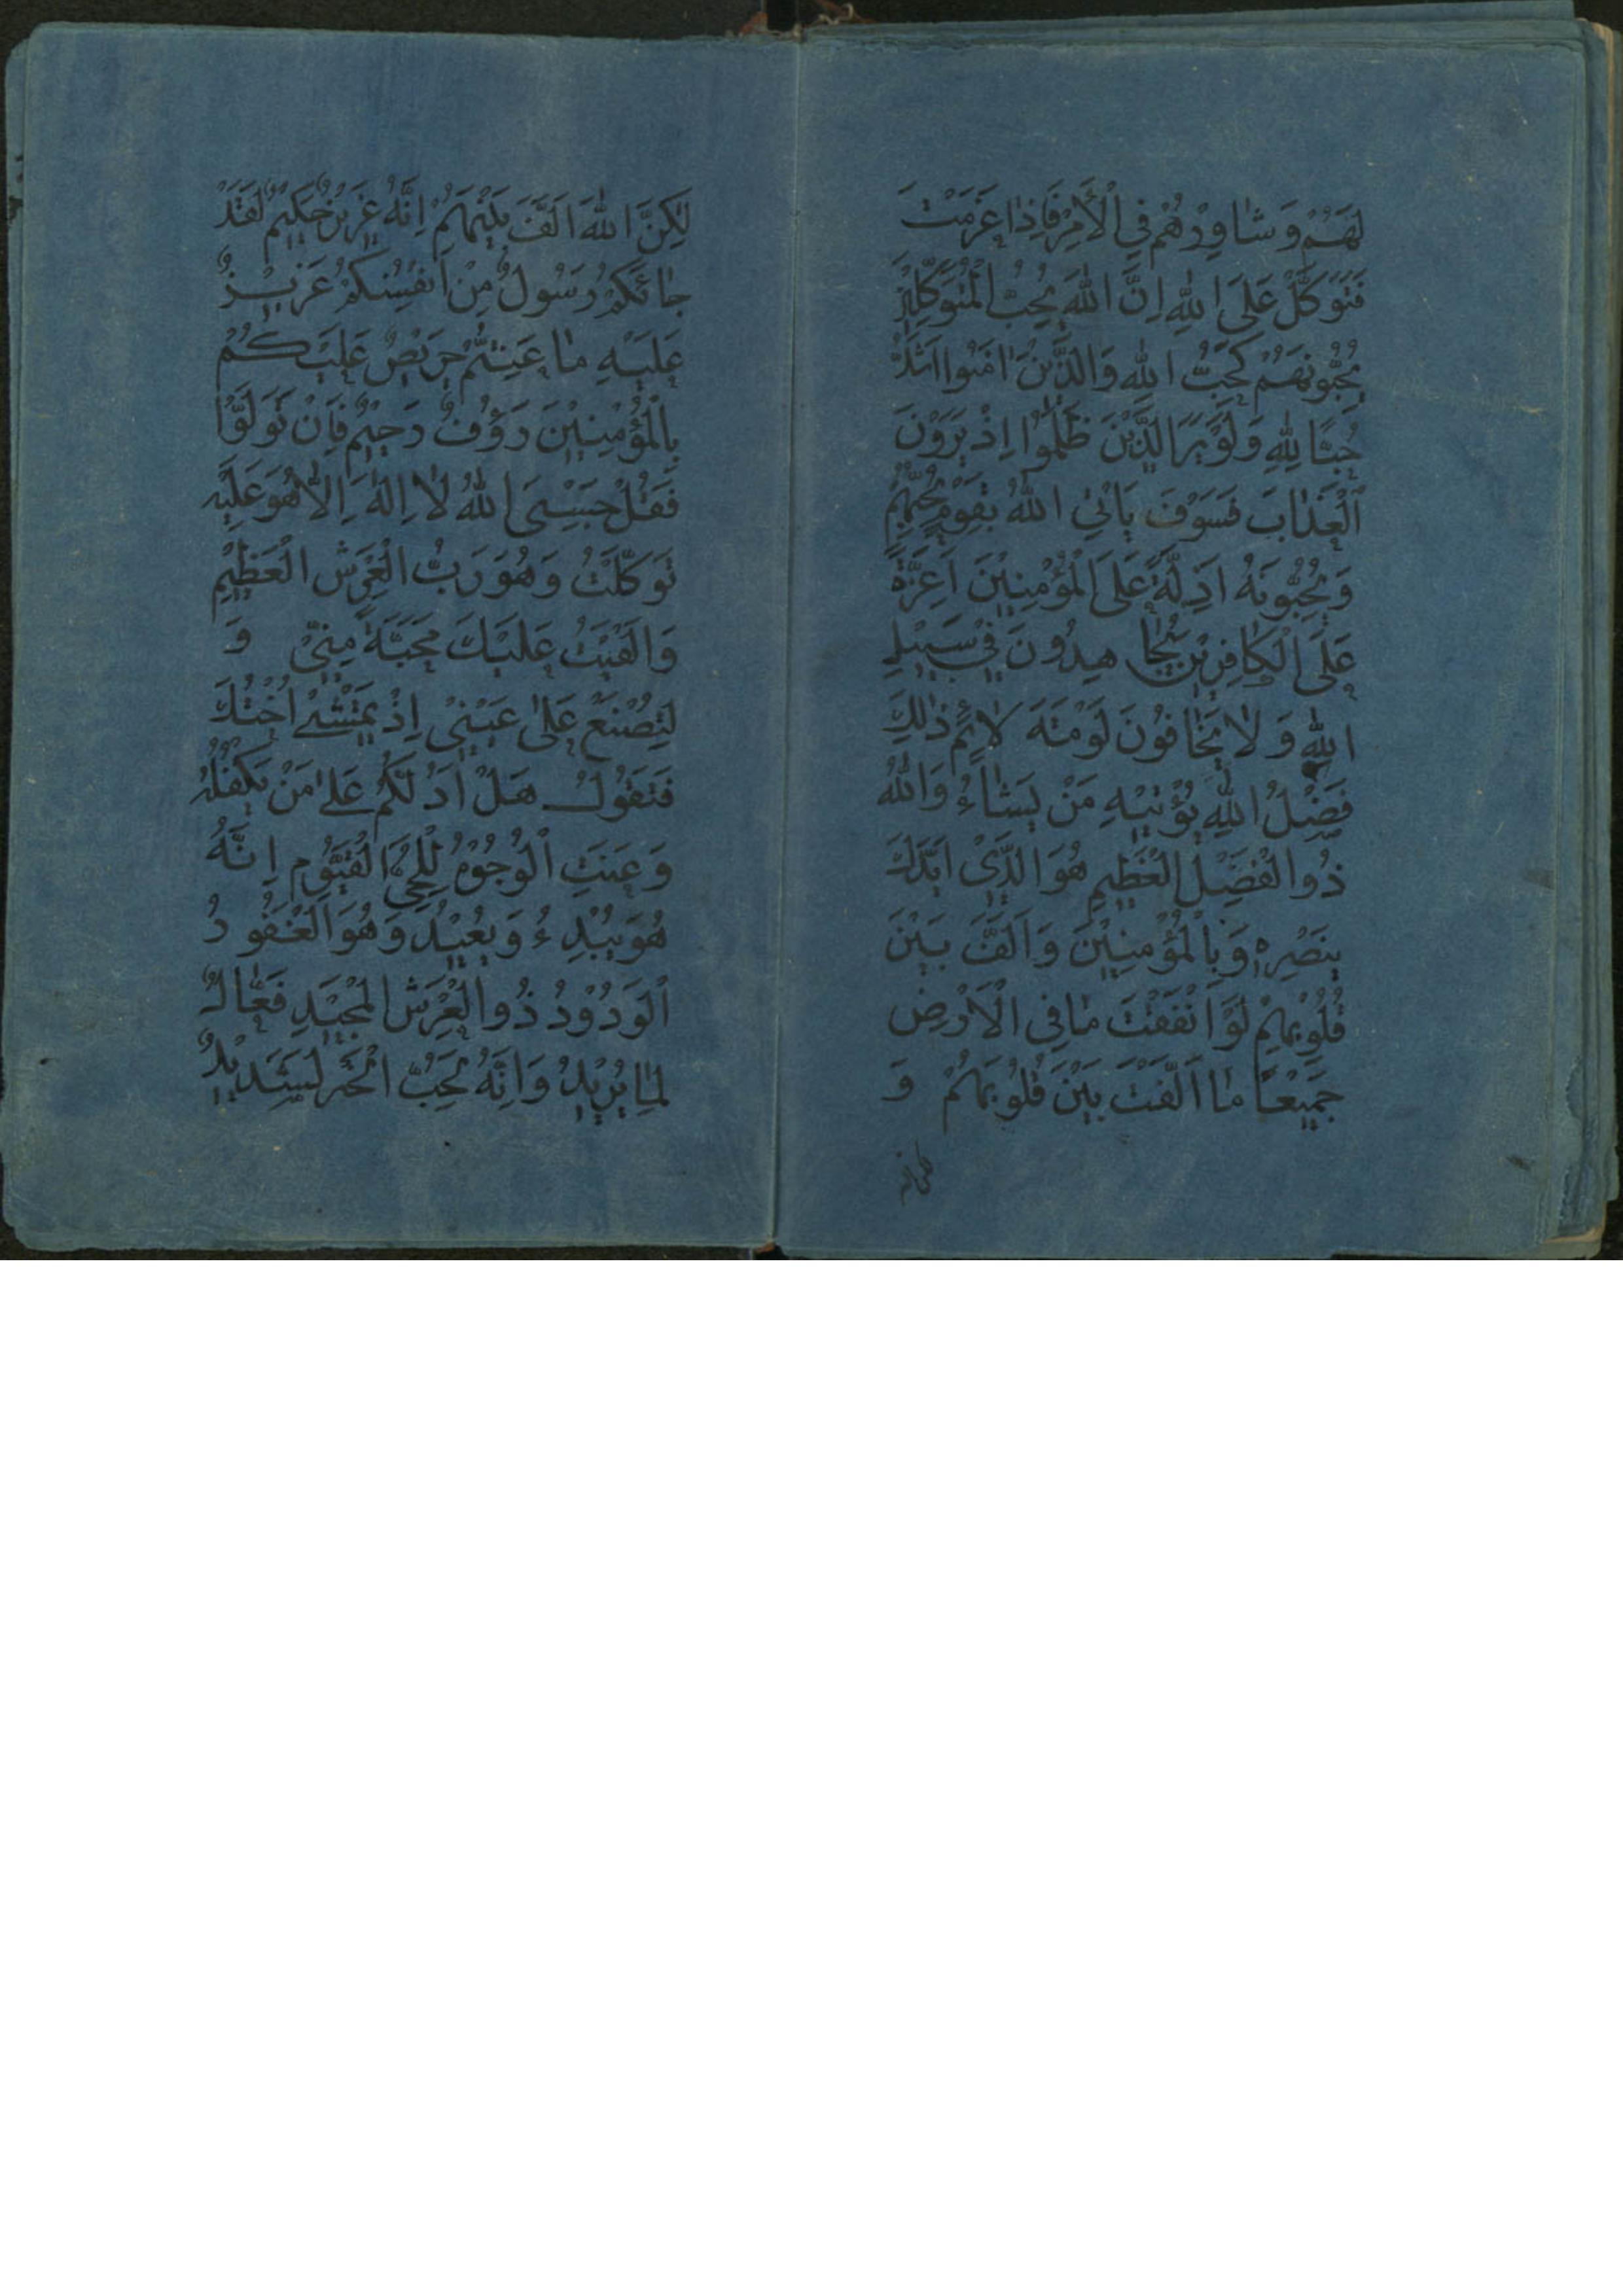 لَهُمْ وَ شٰاوِرْهُمْ فِي الْأَمْرِ فَاِذٰا عَزَمْتَ
فَتَوَكَّلْ عَلَى اللّٰهِ اِنَّ اللّٰهَ يُحِبُّ الْمُتَوَكِّلِينَ
يُحِبُّونَهُمْ كَحُبِّ اللّٰهِ وَالَّذِيْنَ اٰمَنُوا اَشَدُّ
حُبًّا لِلّٰهِ وَلَوْ يَرَ الَّذِيْنَ ظَلَمُوا اِذْ يَرَوْنَ
الْعَذٰابَ فَسَوْفَ يَاْتِي اللّٰهُ بِقَوْمٍ يُحِبُّهُمْ
وَيُحِبُّونَهُ اَذِلَّةً عَلَى الْمُؤْمِنِيْنَ اَعِزَّةً
عَلَى الْكٰافِرِيْنَ يُجٰاهِدُونَ فِيْ سَبِيْلِ
اللّٰهِ وَلٰا يَخٰافُونَ لَوْمَةَ لٰائِمٍ ذٰلِكَ
فَضْلُ اللّٰهِ يُؤْتِيْهِ مَنْ يَشٰاءُ وَاللّٰهُ
ذُوا الْفَضْلِ الْعَظِيْمِ هُوَ الَّذِيْ اَيَّدَكَ
بِنَصْرِهِ وَبِالْمُؤْمِنِيْنَ وَاَلَّفَ بَيْنَ
قُلُوبِهِمْ لَوْ اَنْفَقْتَ مٰا فِي الْاَرْضِ
جَمِيْعًا مٰا اَلَّفْتَ بَيْنَ قُلُوبِهِمْ وَ
لٰكِنَّ اللّٰهَ اَلَّفَ بَيْنَهُمْ اِنَّهُ عَزِيْزٌ حَكِيْمٌ لَقَدْ
جٰائَكُمْ رَسُولٌ مِنْ اَنْفُسِكُمْ عَزِيْزٌ
عَلَيْهِ مٰا عَنِتُّمْ حَرِيْصٌ عَلَيْكُمْ
بِالْمُؤْمِنِيْنَ رَؤُفٌ رَحِيْمٌ فَاِنْ تَوَلَّوْا
فَقُلْ حَسْبِيَ اللّٰهُ لٰا اِلٰهَ اِلّٰا هُوَ عَلَيْهِ
تَوَكَّلْتُ وَهُوَ رَبُّ الْعَرْشِ الْعَظِيْمِ
وَاَلْقَيْتُ عَلَيْكَ مَحَبَّةً مِنِّيْ وَ
لِتُصْنَعَ عَلٰى عَيْنِيْ اِذْ تَمْشِيْ اُخْتُكَ
فَتَقُولُ هَلْ اَدُلُّكُمْ عَلٰى مَنْ يَكْفُلُهُ
وَعَنَتِ الْوُجُوْهُ لِلْحَيِّ الْقَيُّوْمِ اِنَّهُ
هُوَ يُبْدِءُ وَيُعِيْدُ وَهُوَ الْغَفُورُ
الْوَدُوْدُ ذُوا الْعَرْشِ الْمَجِيْدِ فَعّٰالٌ
لِمٰا يُرِيْدُ وَاِنَّهُ لِحُبِّ الْخَيْرِ لَشَدِيْدٌ